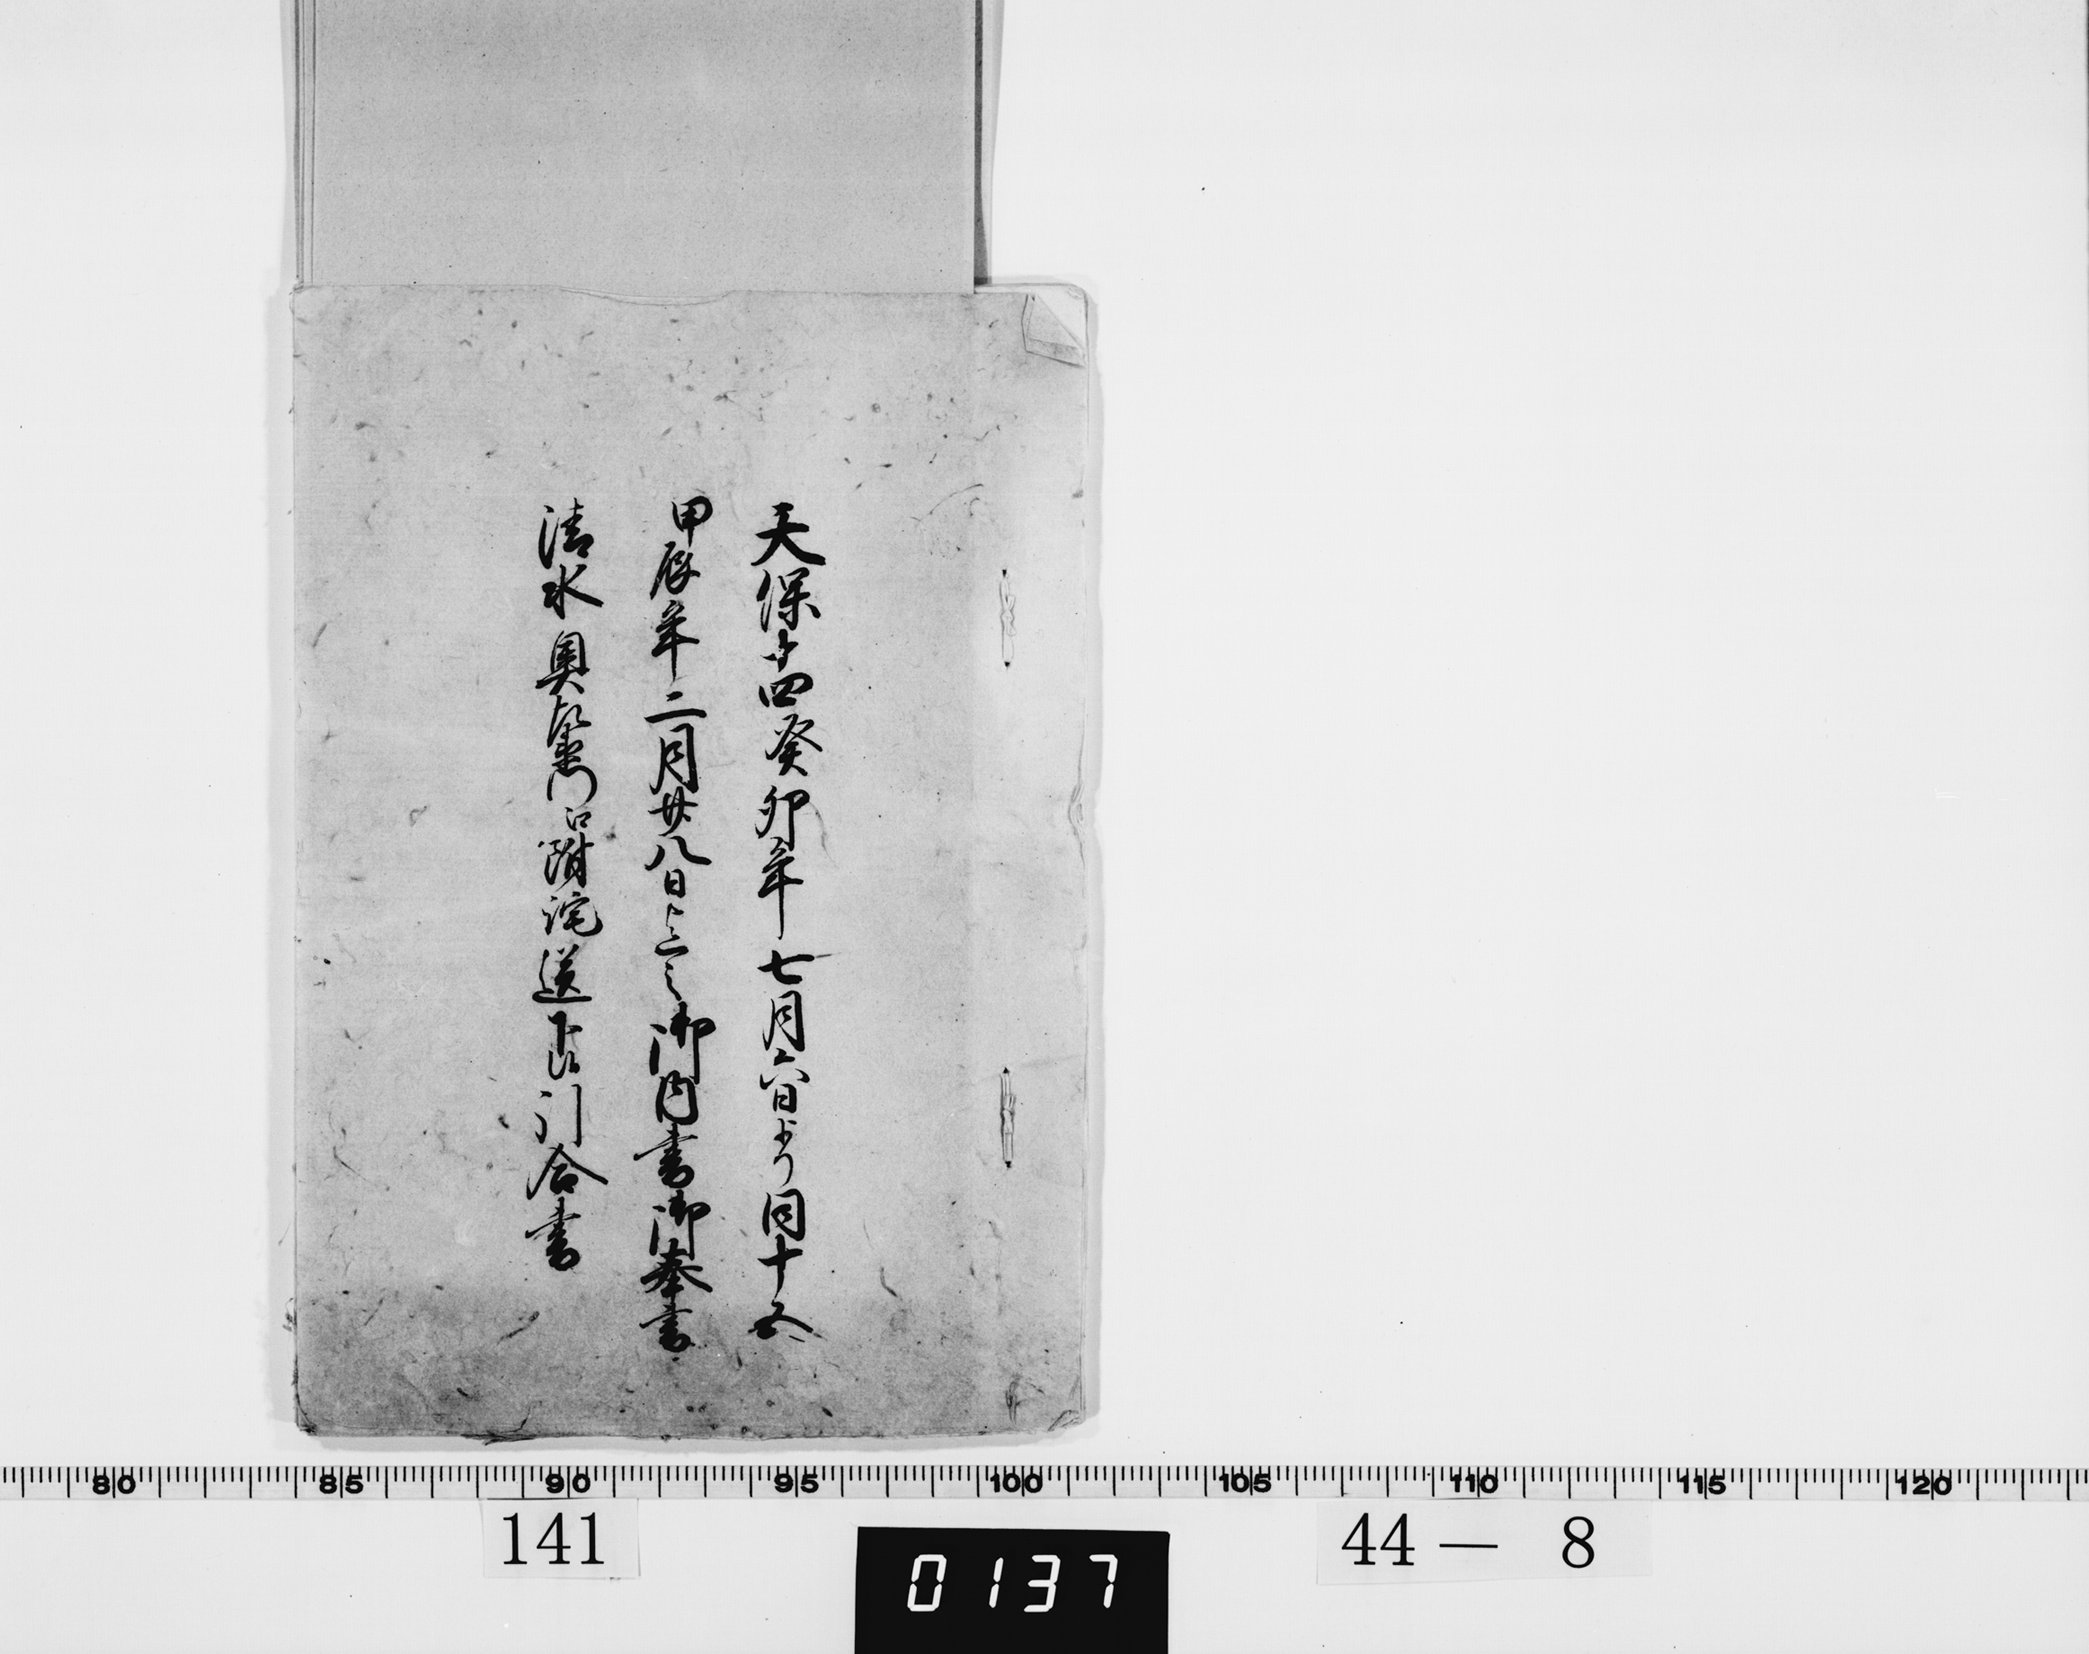 天保十四癸卯年七月六日より同十五
甲辰年二月廿八日迄之御内書御奉書
清水奥左衛門江附詫送下候引合書
80 85 90 95 100 105 110 115 120
141
0137
44— 8